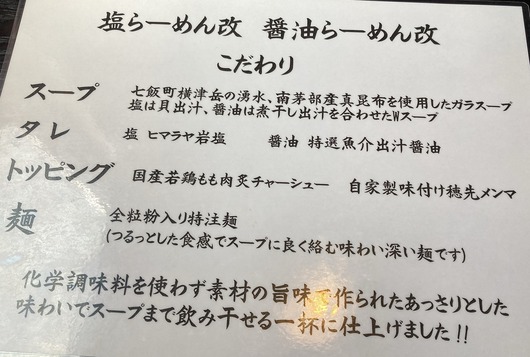 塩らーめん改　醤油らーめん改
こだわり
スープ　七飯町横津岳の湧水、南茅部産真昆布を使用したガラスープ
塩は貝出汁、醤油は煮干し出汁を合わせたWスープ
タレ　塩 ヒマラヤ岩塩　醤油 特選魚介出汁醤油
トッピング　国産若鶏もも肉炙チャーシュー　自家製味付け穂先メンマ
麺　全粒粉入り特注麺
(つるっとした食感でスープに良く絡む味わい深い麺です)
化学調味料を使わず素材の旨味で作られたあっさりとした
味わいでスープまで飲み干せる一杯に仕上げました!!